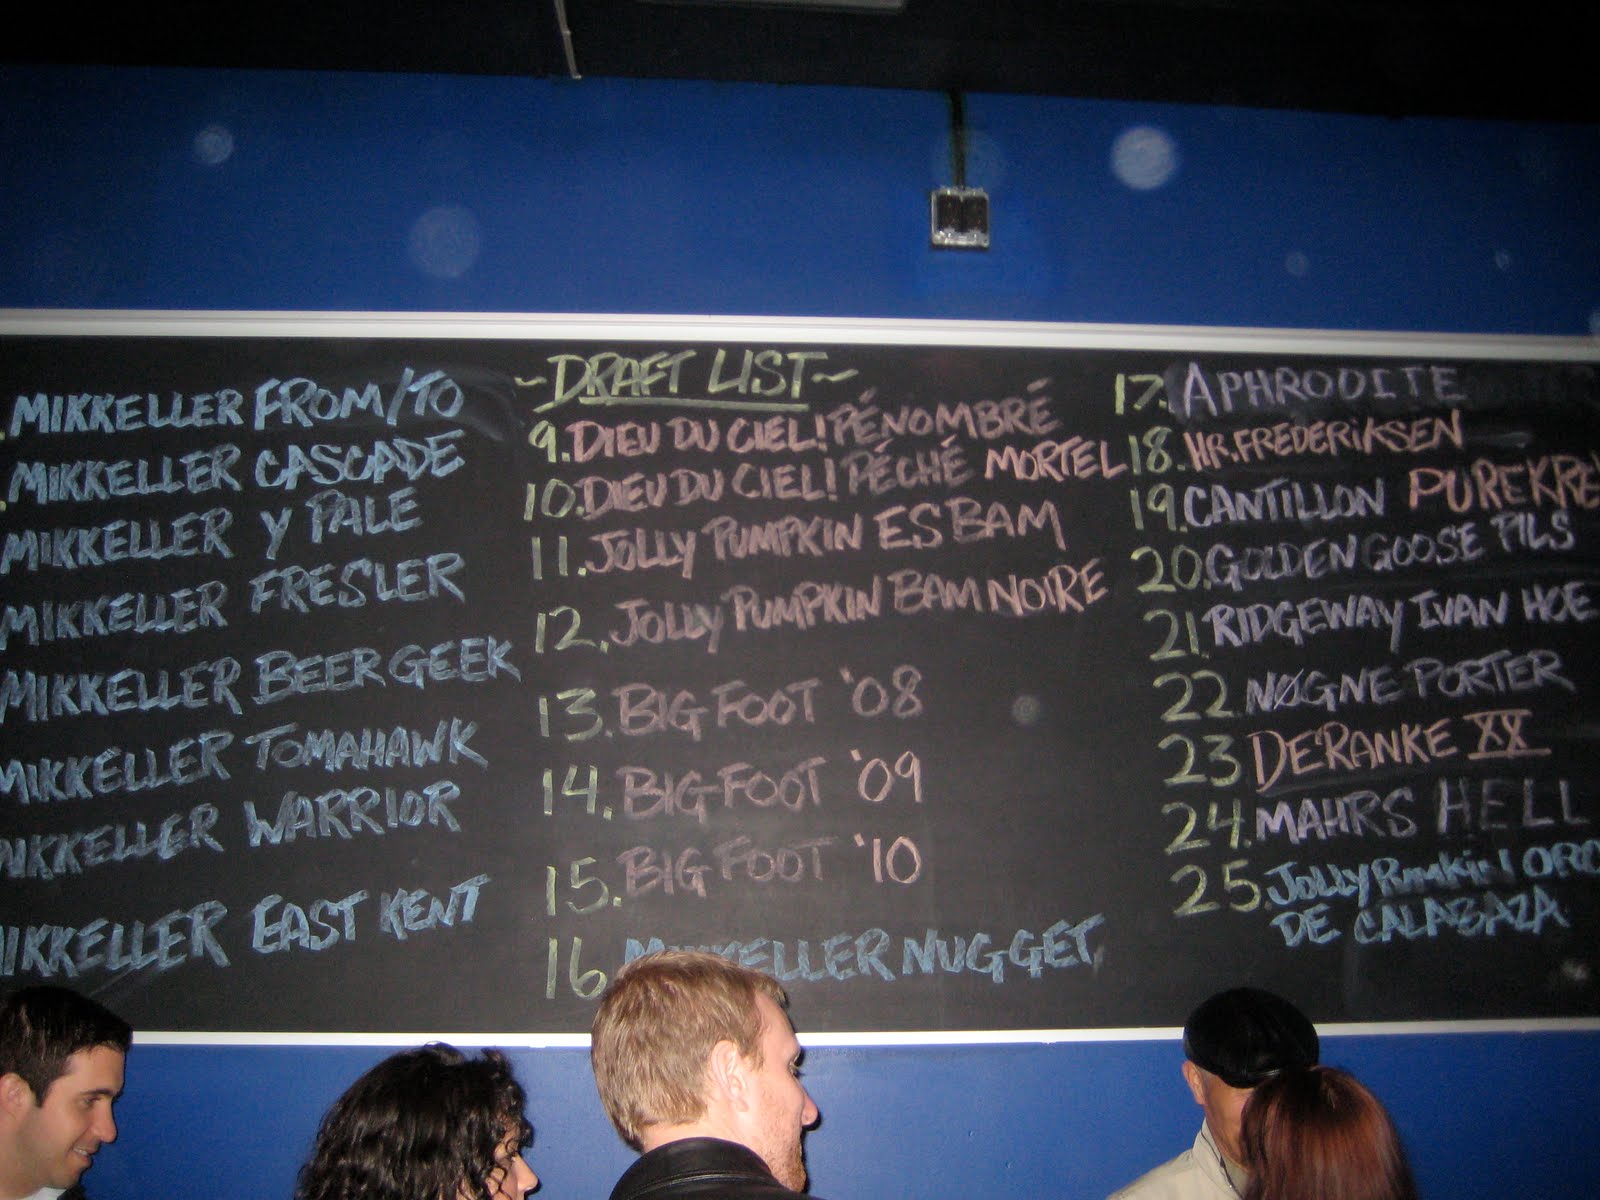 ~DRAFT LIST~
MIKKELLER FROM/TO
MIKKELLER CASCADE
MIKKELLER Y PALE
MIKKELLER FRESLER
MIKKELLER BEER GEEK
MIKKELLER TOMAHAWK
MIKKELLER WARRIOR
MIKKELLER EAST KENT
9. DIEU DU CIEL! PÉNOMBRÉ
10. DIEU DU CIEL! PÉCHÉ MORTEL
11. JOLLY PUMPKIN ES BAM
12. JOLLY PUMPKIN BAM NOIRE
13. BIGFOOT '08
14. BIGFOOT '09
15. BIGFOOT '10
16 MIKKELLER NUGGET
17. APHRODITE
18. HR. FREDERIKSEN
19. CANTILLON PUREKRE
20. GOLDEN GOOSE PILS
21. RIDGEWAY IVAN HOE
22. NØGNE PORTER
23 DERANKE XX
24. MAHRS HELL
25. JOLLY PUMPKIN ORO
DE CALABAZA